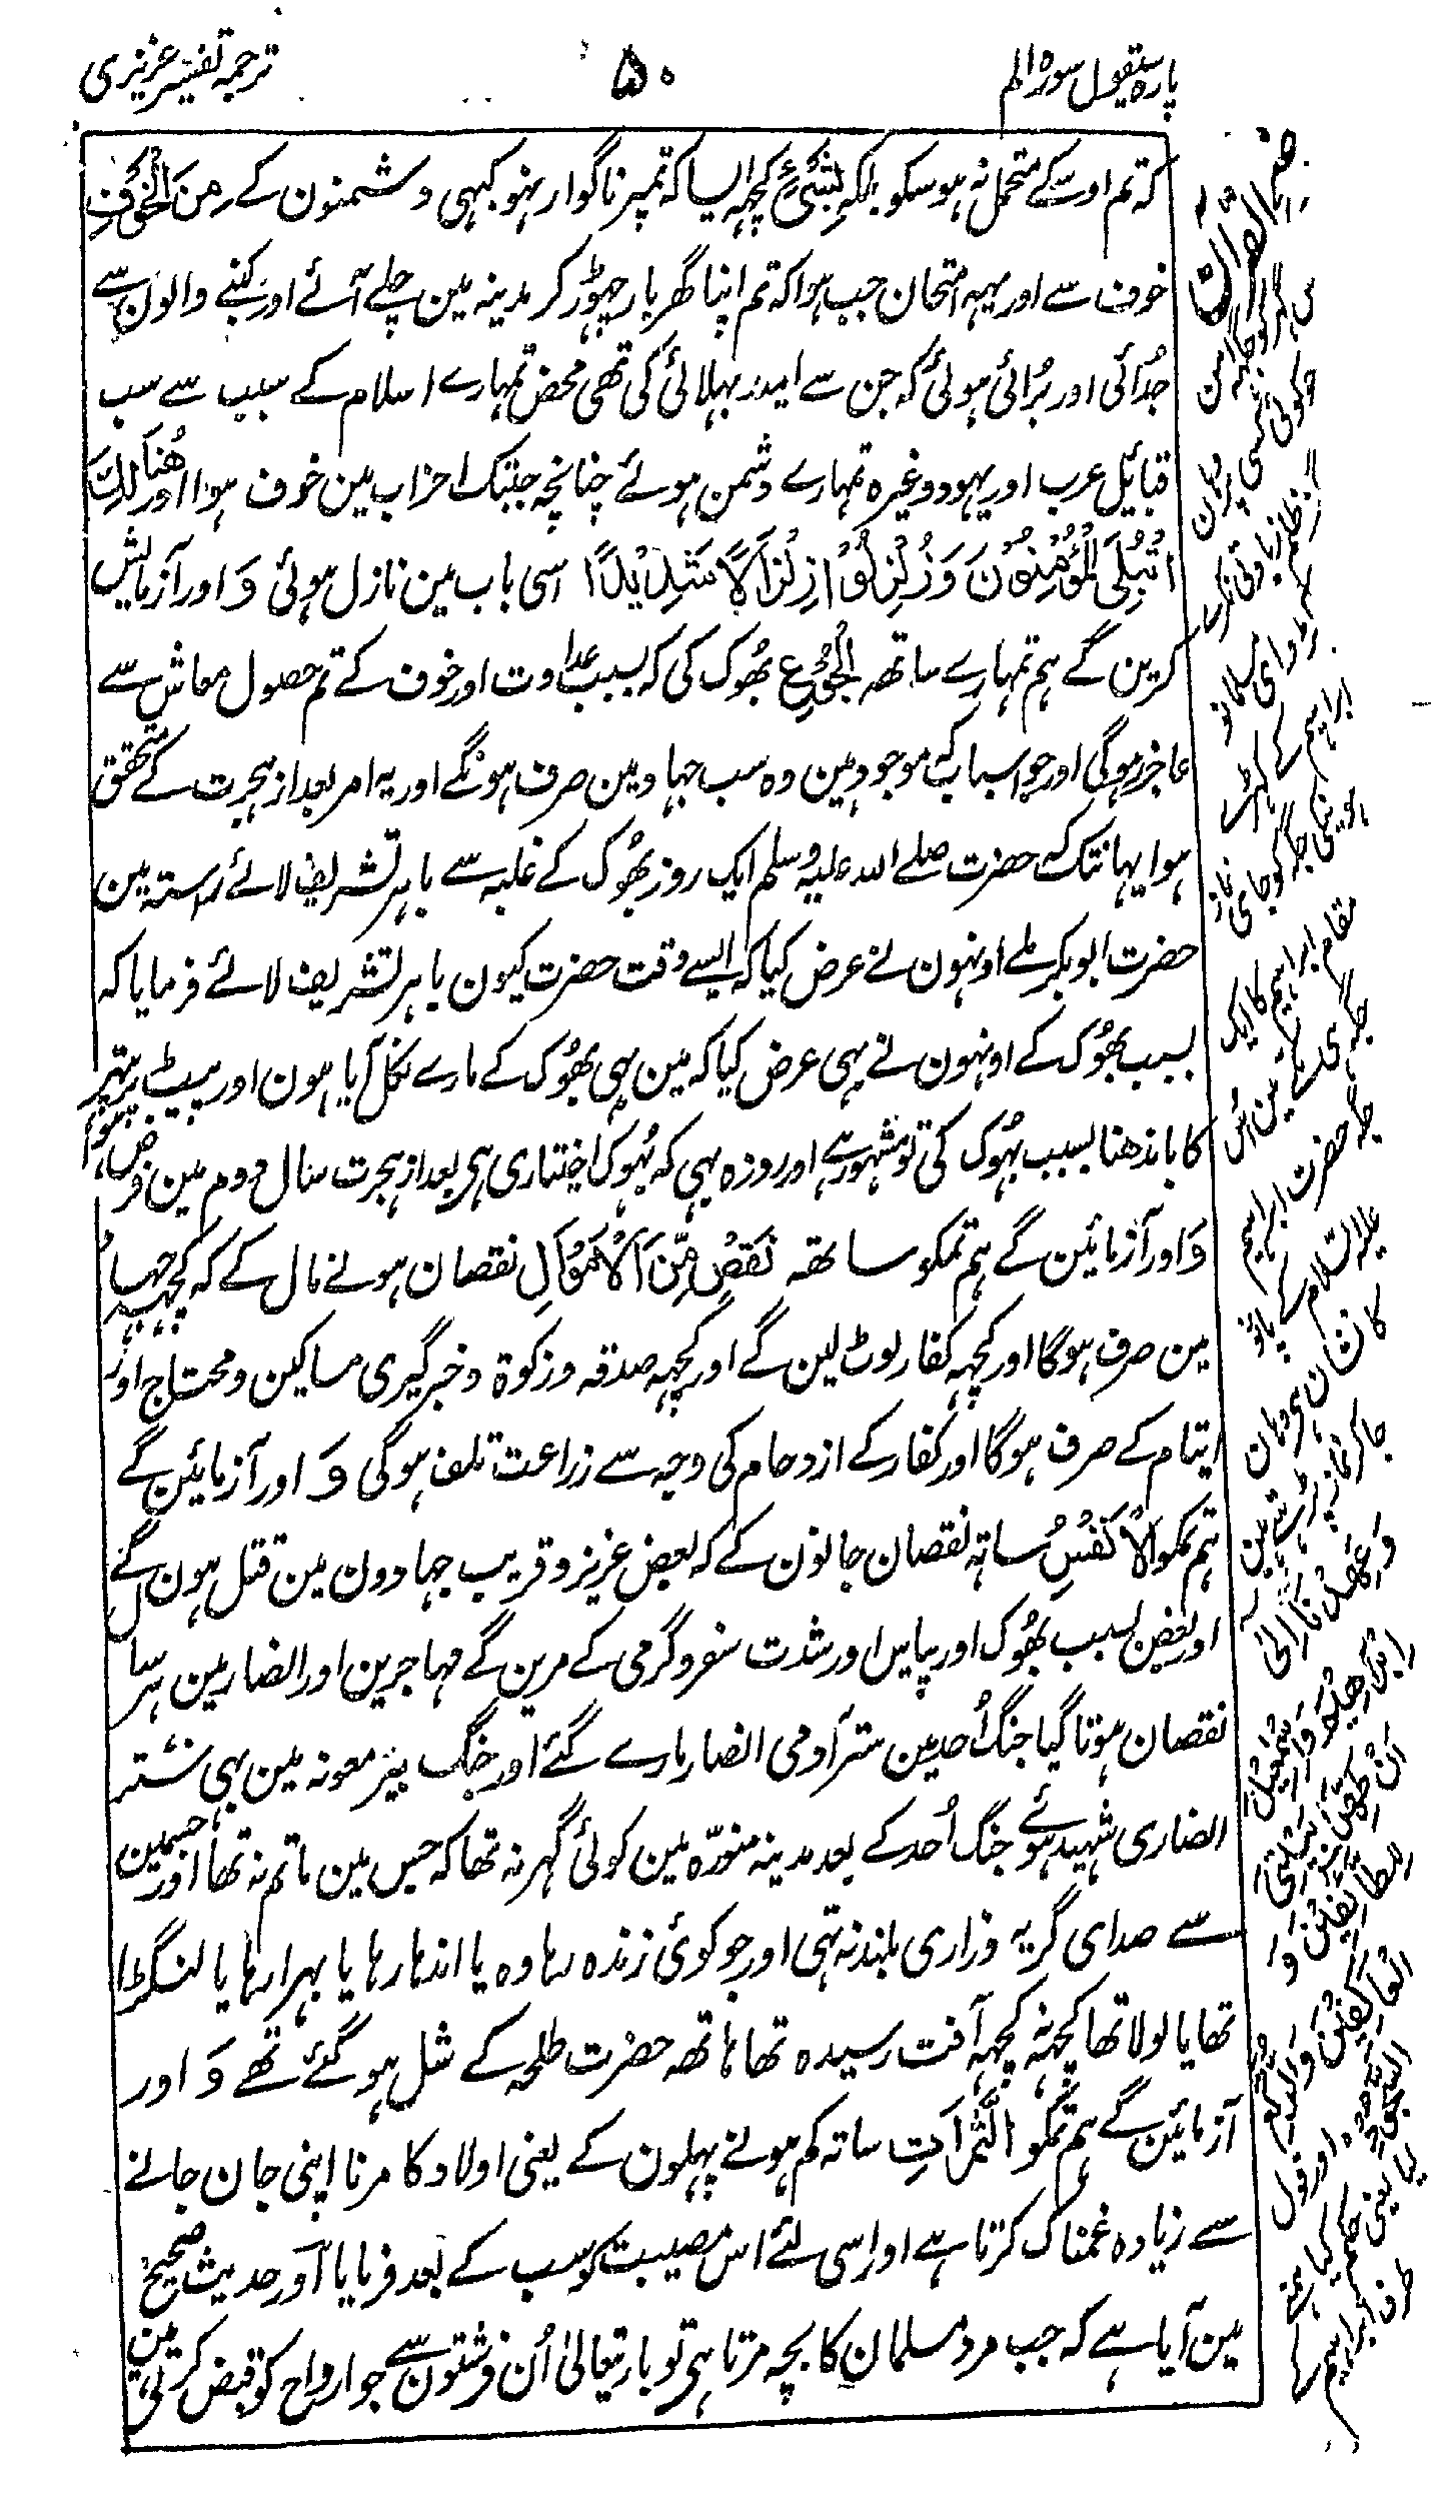 پارہ سیقول سورہ الم
۵۰
ترجمہ تفسیر عزیزی
کہ تم اوسکے متحمل نہ ہو سکو بلکہ بِشَیْءٍ کچہہ ایسا کہ تمپر ناگوار نہو کبہی دشمنون کے مِنَ الْخَوْفِ
خوف سے اور یہہ امتحان جب ہوا کہ تم اپنا گھر بار چہوڑ کر مدینہ مین چلے آئے اور کنبے والون سے
جُدائی اور بُرائی ہوئی کہ جن سے امید بہلائی کی تھی محض تمہارے اسلام کے سبب سے سب
قبائیل عرب اور یہود وغیرہ تمہارے دشمن ہوئے چنانچہ جنگ احزاب مین خوف ہوا اور ھُنَالِكَ
ابْتُلِیَ الْمُؤْمِنُوْنَ وَزُلْزِلُوْا زِلْزَالًا شَدِیْدًا اسی باب مین نازل ہوئی وَ اور آزمایش
کرین گے ہم تمہارے ساتھہ الْجُوْعِ بھُوک کی کہ بسبب عداوت اور خوف کے تم حصول معاش سے
عاجز ہوگی اور جو اسباب کہ موجود ہین وہ سب جہاد مین صرف ہونگے اور یہ امر بعد از ہجرت کے متحقق
ہوا یہانتک کہ حضرت صلے اللہ علیہ وسلم ایک روز بھُوک کے غلبہ سے باہر تشریف لائے راستہ مین
حضرت ابو بکر ملے اونہون نے عرض کیا کہ ایسے وقت حضرت کیون باہر تشریف لائے فرمایا کہ
بسبب بھُوک کے اونہون نے بہی عرض کیا کہ مین بہی بھُوک کے مارے نکل آیا ہون اور پیٹ پر پتہر
کا باندھنا بسبب بہُوک کی تو مشہور ہے اور روزہ بہی کہ بہُوک اختیاری ہی بعد از ہجرت سال دوم مین فرض ہوا
وَ اور آزمائین گے ہم تمکو ساتھہ نَقْصٍ مِّنَ الْاَمْوَالِ نقصان ہونے مال کے کہ کچہہ جہاد
مین صرف ہوگا اور کچہہ کفار لوٹ لین گے اور کچہہ صدقہ و زکوۃ و خبر گیری مساکین و محتاج اور
ایتام کے صرف ہوگا اور کفار کے ازدحام کی وجہ سے زراعت تلف ہوگی وَ اور آزمائین گے
ہم تمکو الْاَنْفُسِ ساتہہ نقصان جانون کے کہ بعض عزیز و قریب جہادون مین قتل ہون گے
اور بعض بسبب بھُوک اور پیاس اور شدت سفر و گرمی کے مرین گے مہاجرین اور انصار مین ہر سال
نقصان ہوتا گیا جنگ اُحد مین ستر آدمی انصار مارے گئے اور جنگ بیر معونہ مین بہی ستر
انصاری شہید ہوئے جنگ اُحد کے بعد مدینہ منورّہ مین کوئی گہر نہ تھا کہ جس مین ماتم نہ تھا اور جسمین
سے صدای گریہ و زاری بلند نہ تہی اور جو کوئی زندہ رہا وہ یا اندہا رہا یا بہرا رہا یا لنگڑا
تھا یا لولا تھا کچہہ نہ کچہہ آفت رسیدہ تھا ہاتھہ حضرت طلحہ کے شل ہو گئے تھے وَ اور
آزمائین گے ہم تمکو الثَّمَرَاتِ ساتہ کم ہونے پہلون کے یعنی اولاد کا مرنا اپنی جان جانے
سے زیادہ غمناک کرتا ہے اور اسی لئے اس مصیبت کو سب کے بعد فرمایا اور حدیث صحیح
مین آیا ہے کہ جب مرد مسلمان کا بچہ مرتا ہی تو باریتعالیٰ اُن فرشتون سے جو ارواح کو قبض کرتے ہین
مقام ابراہیم کا ایک
جگہ حضرت ابراہیم
علیہ السلام کے پانو
کا نشان ہی وہان
جا کر نماز پڑہتے ہین
وَعَهِدْنَا اِلٰى
اِبْرٰهٖمَ وَاِسْمٰعِیْلَ
اَنْ طَهِّرَا بَیْتِیَ
لِلطَّآئِفِیْنَ وَ
الْعٰكِفِیْنَ وَالرُّكَّعِ
السُّجُوْدِ